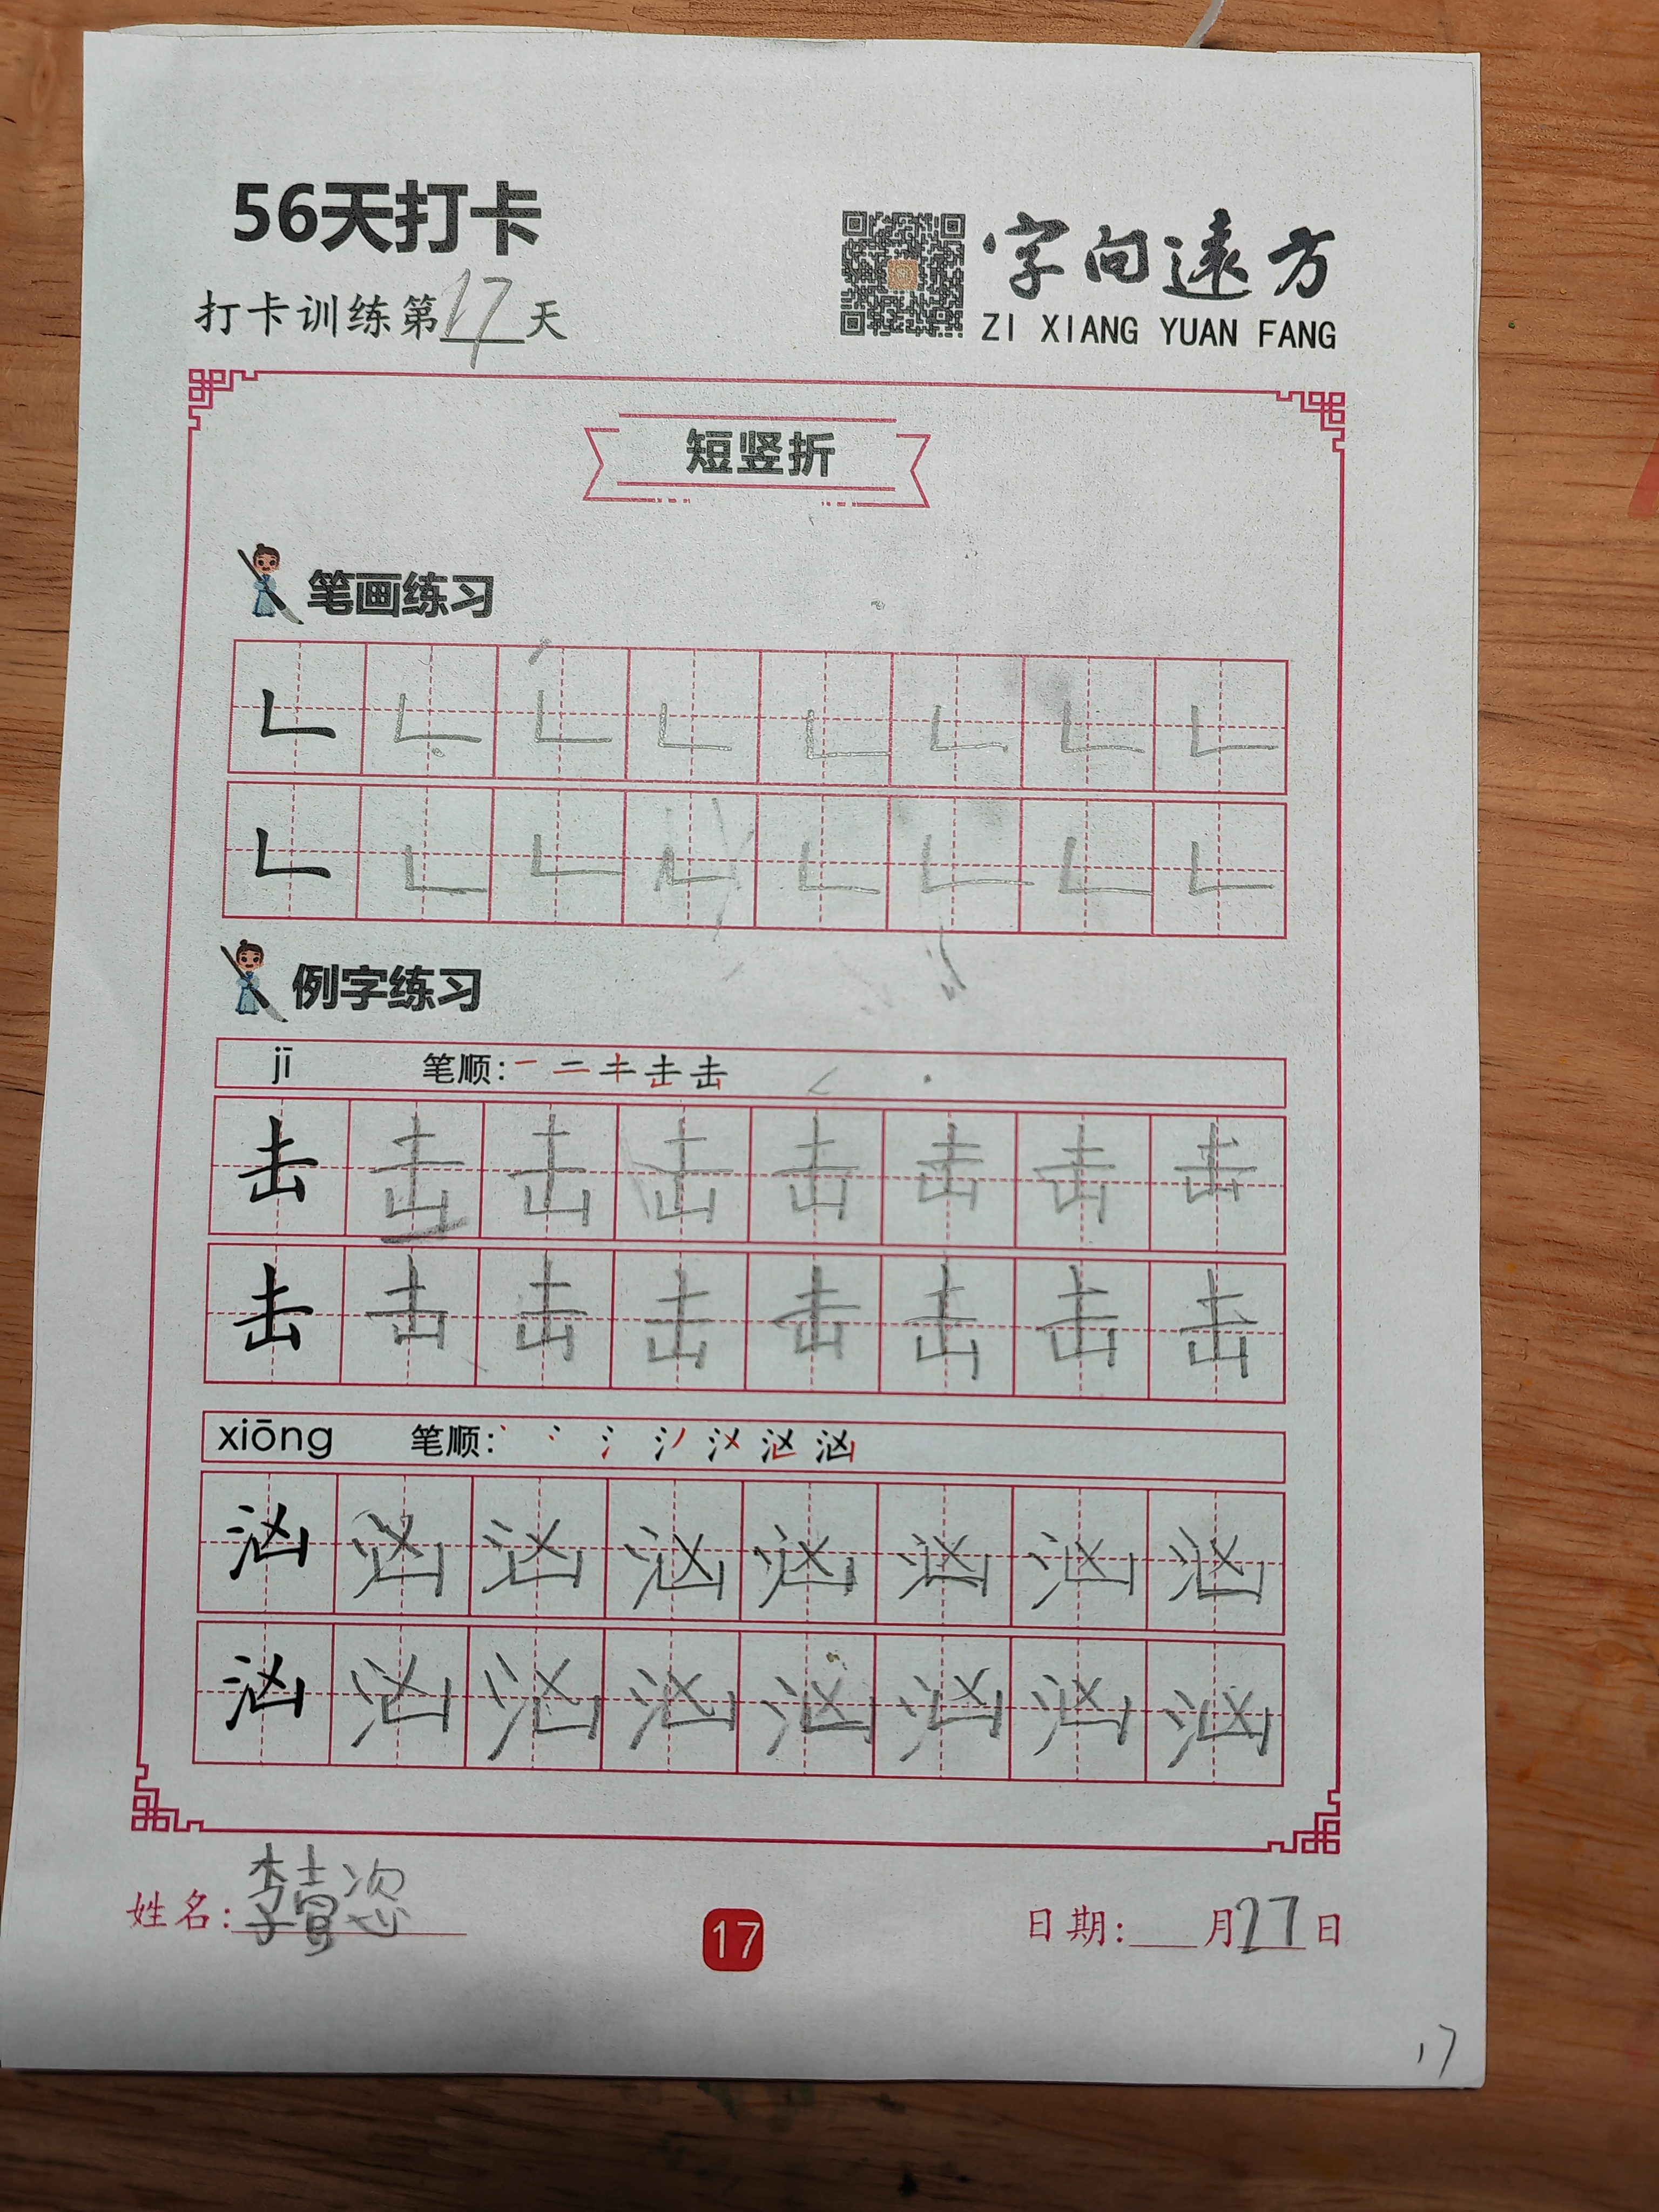 56天打卡
打卡训练第17天
字向遠方
ZI XIANG YUAN FANG
短竖折
笔画练习
例字练习
jī 笔顺:
击 击 击 击 击 击 击 击
击 击 击 击 击 击 击 击
xiōng 笔顺:
汹 汹 汹 汹 汹 汹 汹 汹
汹 汹 汹 汹 汹 汹 汹 汹
姓名:李
17
日期:___月27日
17